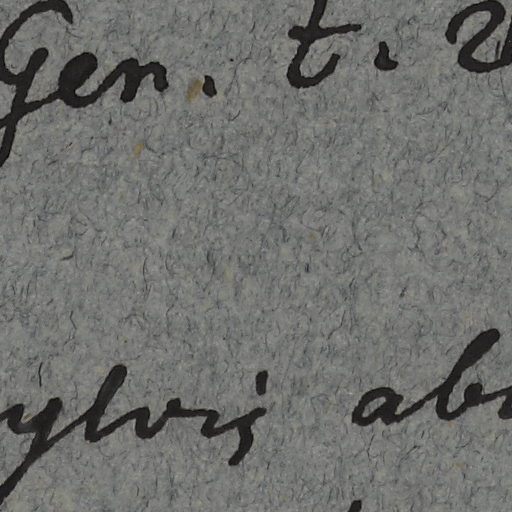 Gen. t.
ylvis ab